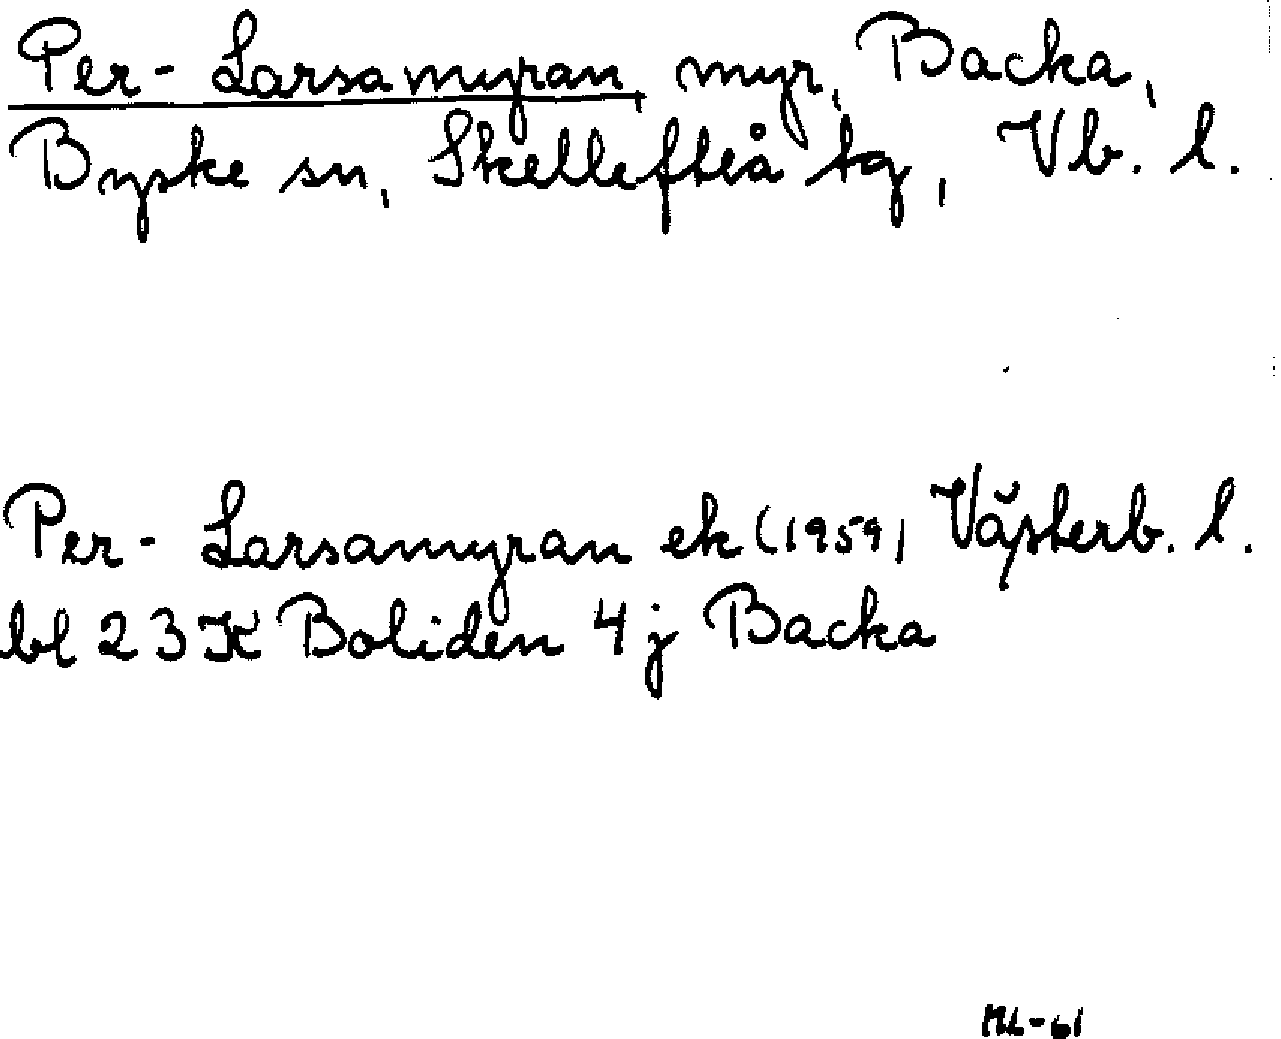 Per-Larsamyran, myr, Backa,
Byske sn, Skellefteå tg, Vb. l.
Per-Larsamyran ek (1959) Västerb. l.
bl 23K Boliden 4j Backa
ML-61